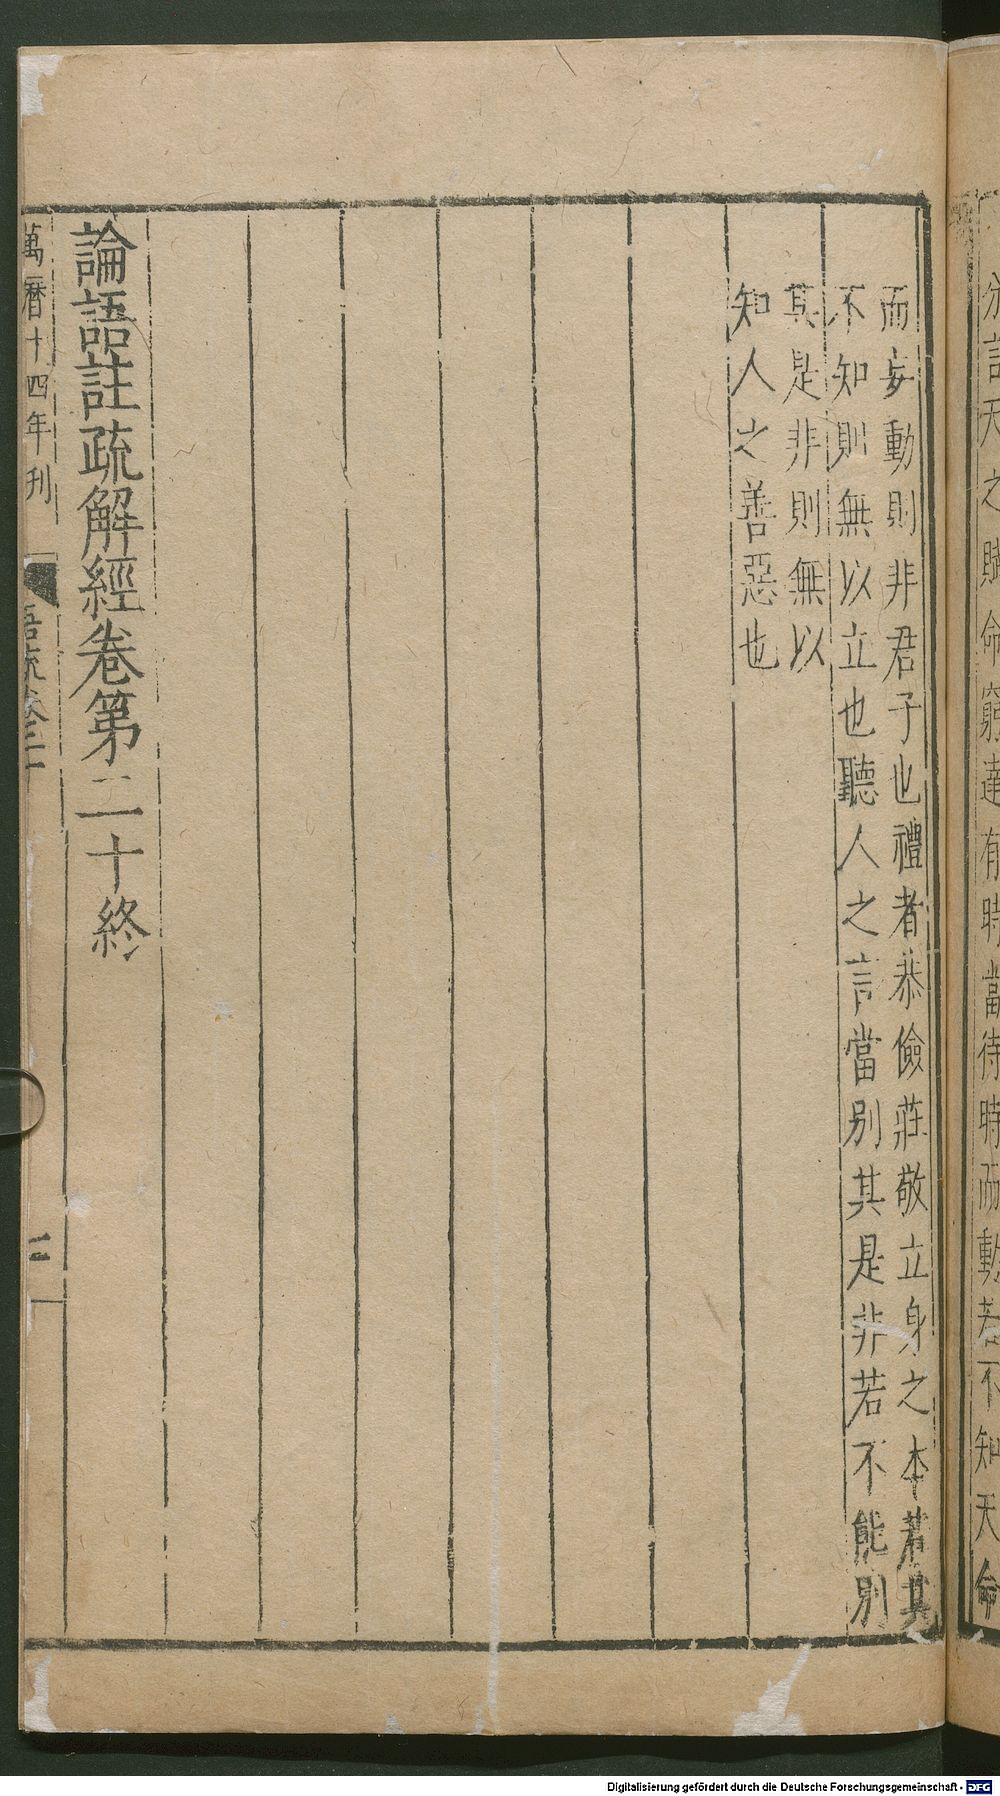 分言天之賦命窮達有時當待時而動若不知天命
而妄動則非君子也禮者恭儉莊敬立身之本若其
不知則無以立也聽人之言當別其是非若不能別
其是非則無以
知人之善惡也
論語註疏解經卷第二十終
萬曆十四年刊
語疏卷二十
Digitalisierung gefördert durch die Deutsche Forschungsgemeinschaft - DFG